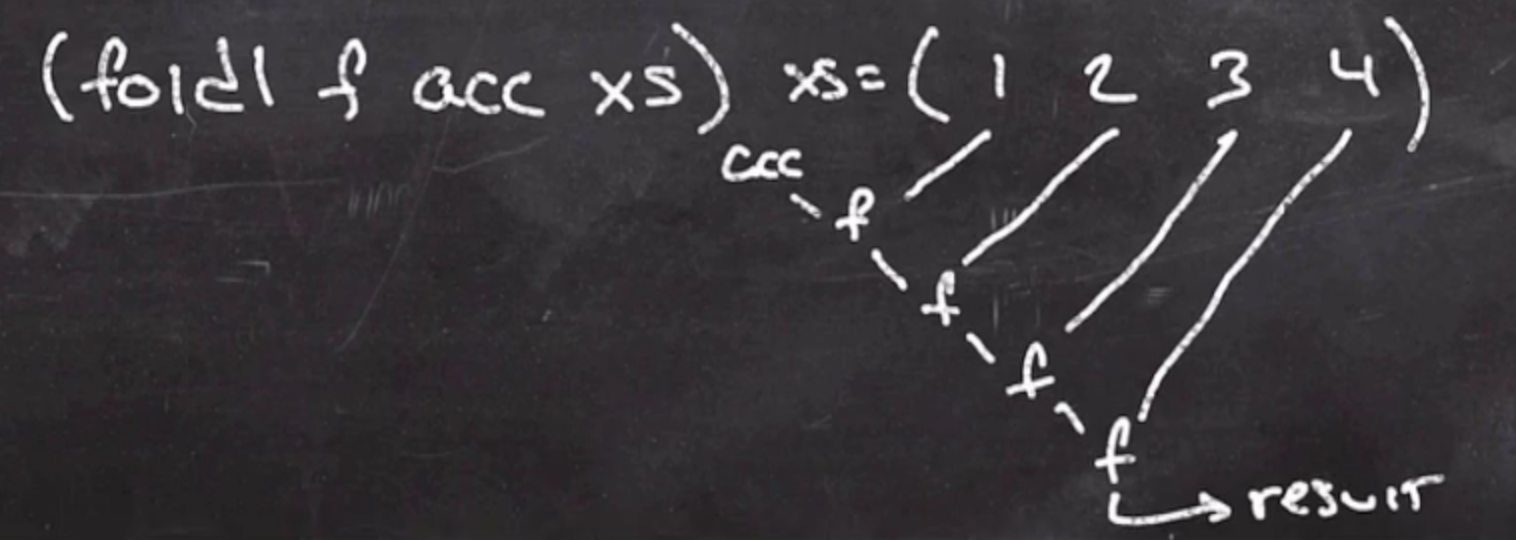 (foldl f acc xs) xs=( 1 2 3 4 )
acc
f
f
f
f
result